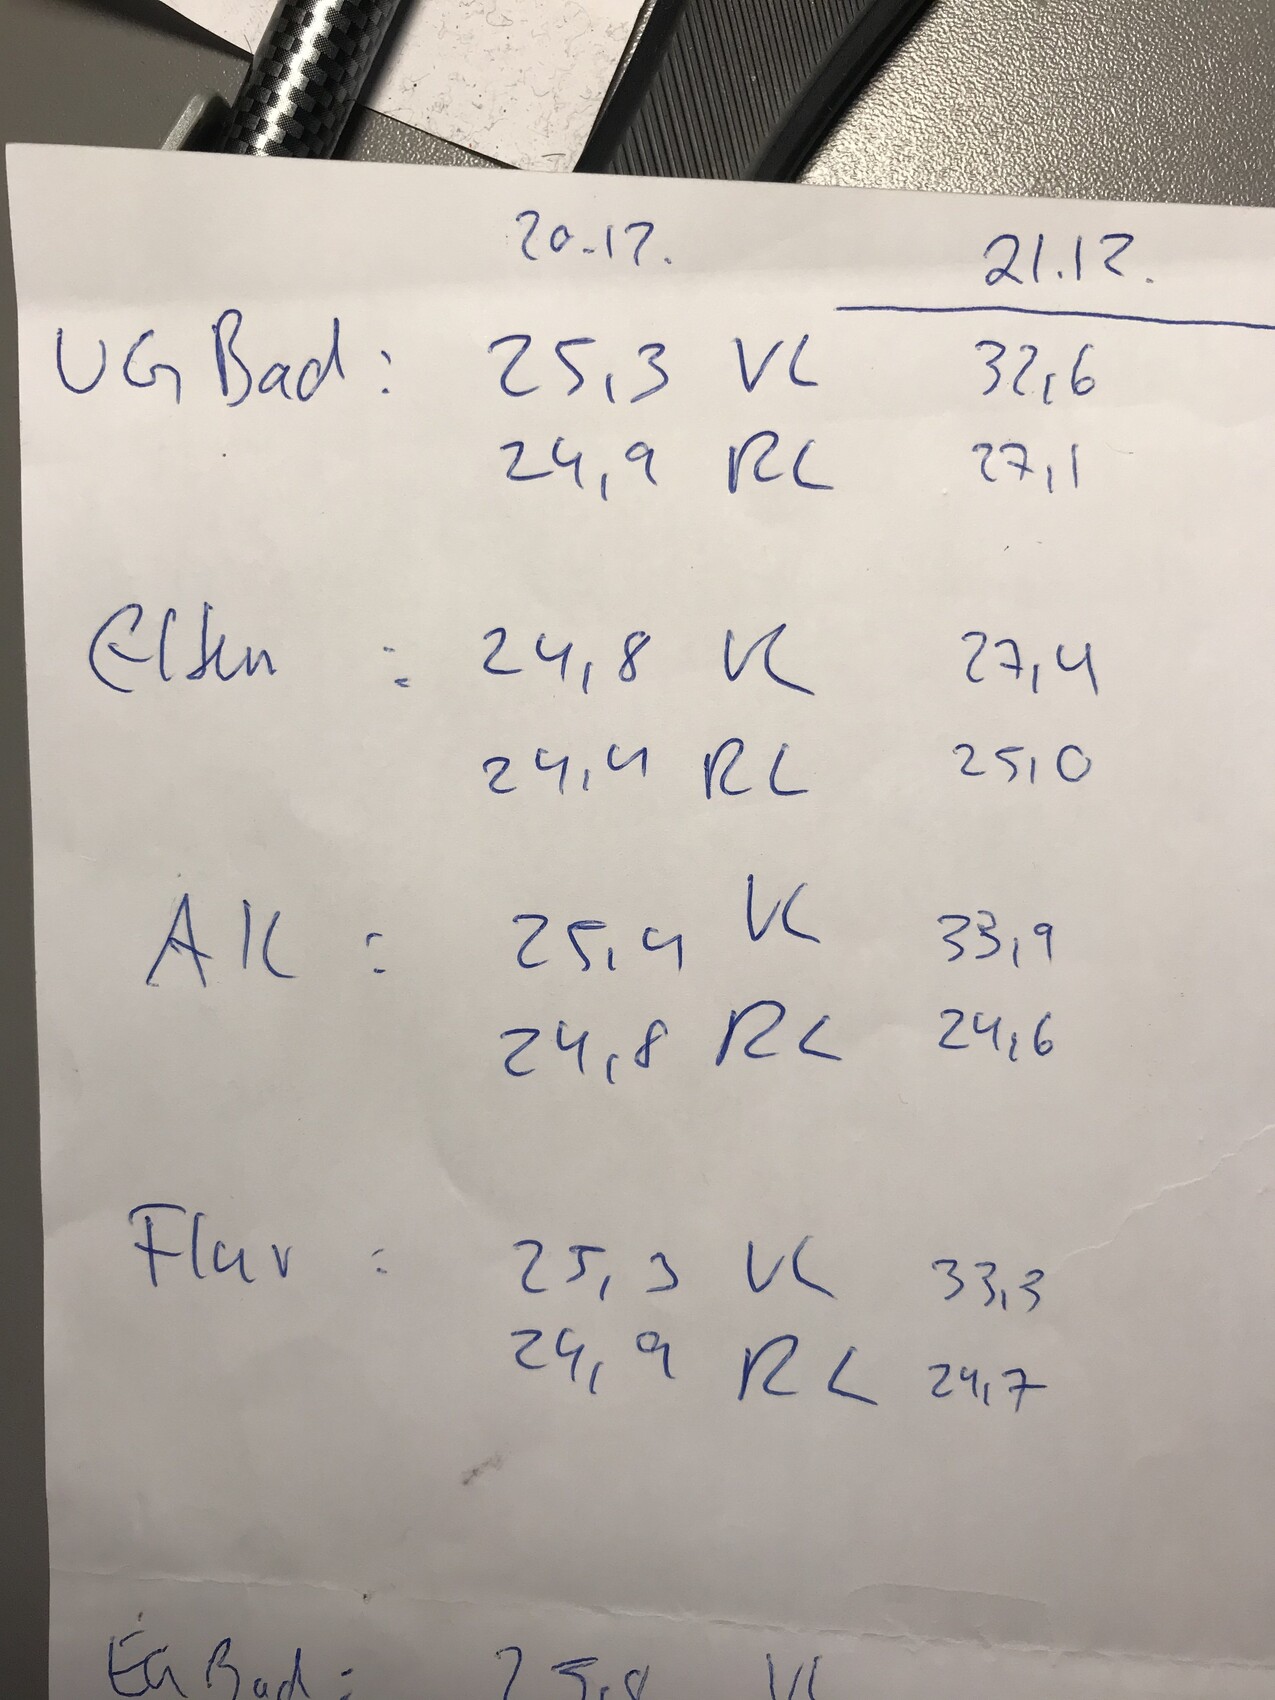 20.12. 21.12.
UG Bad: 25,3 VL 32,6
24,9 RL 27,1
Eltern : 24,8 VL 27,4
24,4 RL 25,0
AK : 25,4 VL 33,9
24,8 RL 24,6
Flur : 25,3 VL 33,3
24,9 RL 24,7
EG Bad: VL